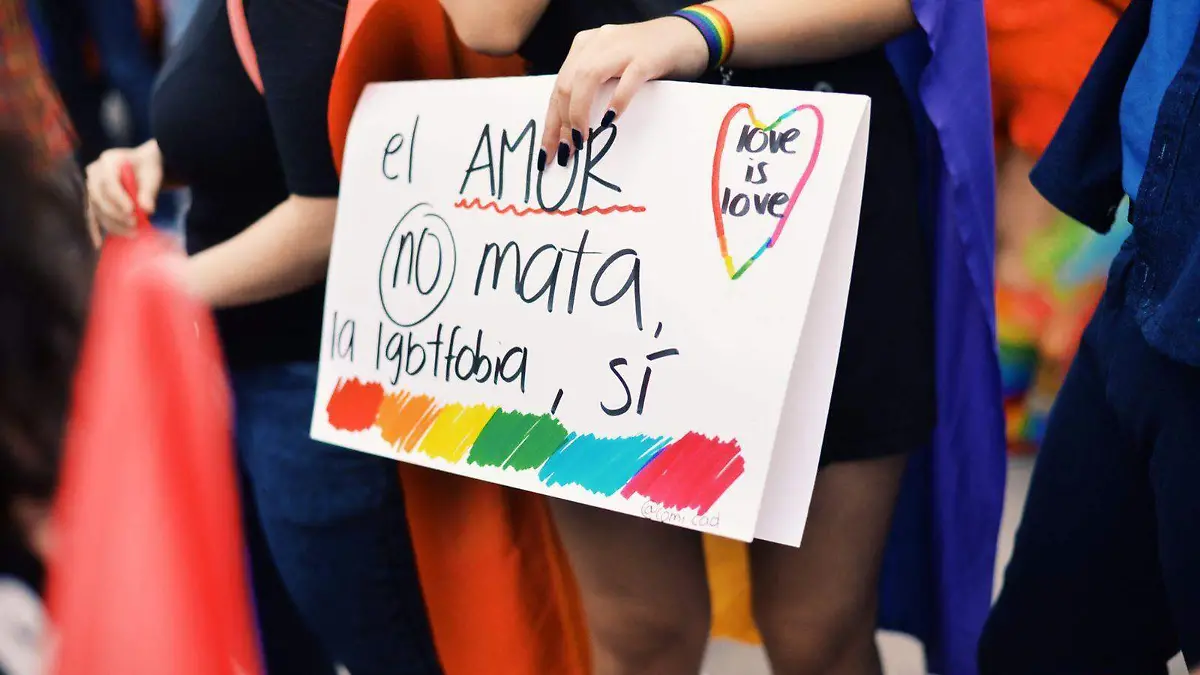 el AMOR
no mata,
la lgbtfobia, sí
love
is
love